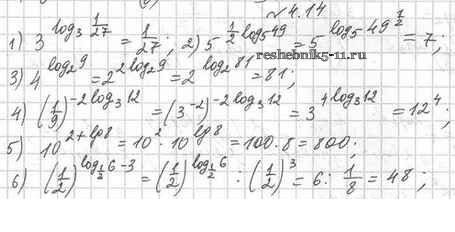 №4.14
1) 3^{log_3 1/27} = 1/27; 2) 5^{1/2 log_5 49} = 5^{log_5 49^{1/2}} = 7;
reshebnik5-11.ru
3) 4^{log_2 9} = 2^{2 log_2 9} = 2^{log_2 81} = 81;
4) (1/9)^{-2 log_3 12} = (3^{-2})^{-2 log_3 12} = 3^{4 log_3 12} = 12^4;
5) 10^{2+lg 8} = 10^2 · 10^{lg 8} = 100 · 8 = 800;
6) (1/2)^{log_{1/3} 6 - 3} = (1/2)^{log_{1/2} 6} : (1/2)^3 = 6 : 1/8 = 48;